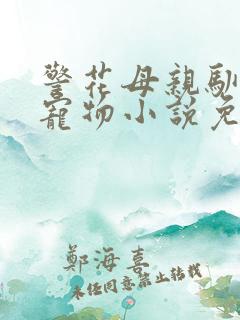 警花母親馴
寵物小說免
鄭海喜
未经同意禁止转载